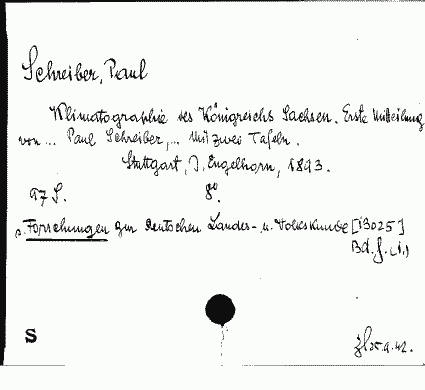 Schreiber, Paul
Klimatographie des Königreichs Sachsen. Erste Mitteilung
von ... Paul Schreiber, ... Mit zwei Tafeln.
Stuttgart, J. Engelhorn, 1893.
97 S. 8°.
s. Forschungen zur deutschen Landes- u. Volkskunde [i3025]
Bd. 8. (i.)
S